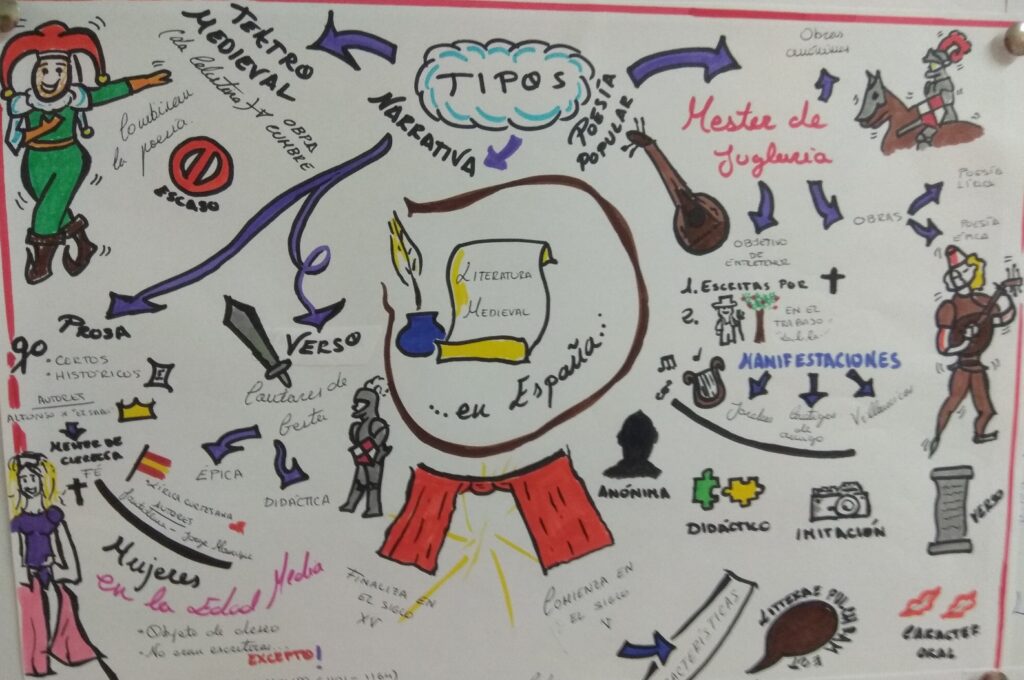 TEATRO
MEDIEVAL
(La Celestina)
OBRA
CUMBRE
Combinan
la poesía.
ESCASO
TIPOS
NARRATIVA
POESÍA
POPULAR
Obras
anónimas
Mester de
Juglaría
OBJETIVO
DE
ENTRETENER
OBRAS
POESÍA
LÍRICA
POESÍA
ÉPICA
1. ESCRITAS POR
2.
EN EL
TRABAJO
MANIFESTACIONES
Jarchas
Cantigas
de
amigo
Villancicos
LITERATURA
MEDIEVAL
...en España...
PROSA
• CERTOS
• HISTÓRICOS
AUTORES
ALFONSO X "EL SABIO
MESTER DE
CLERECÍA
FÉ
LÍRICA CORTESANA
AUTORES
Santillana - Jorge Manrique
VERSO
Cantares de
Gesta
ÉPICA
DIDÁCTICA
Mujeres
en la Edad Media
• Objeto de deseo
• No eran escritoras...
EXCEPTO!
FINALIZA EN
EL SIGLO
XV
COMIENZA EN
EL SIGLO
V
ANÓNIMA
DIDÁCTICO
IMITACIÓN
VERSO
CARACTERÍSTICAS
CARACTER
ORAL